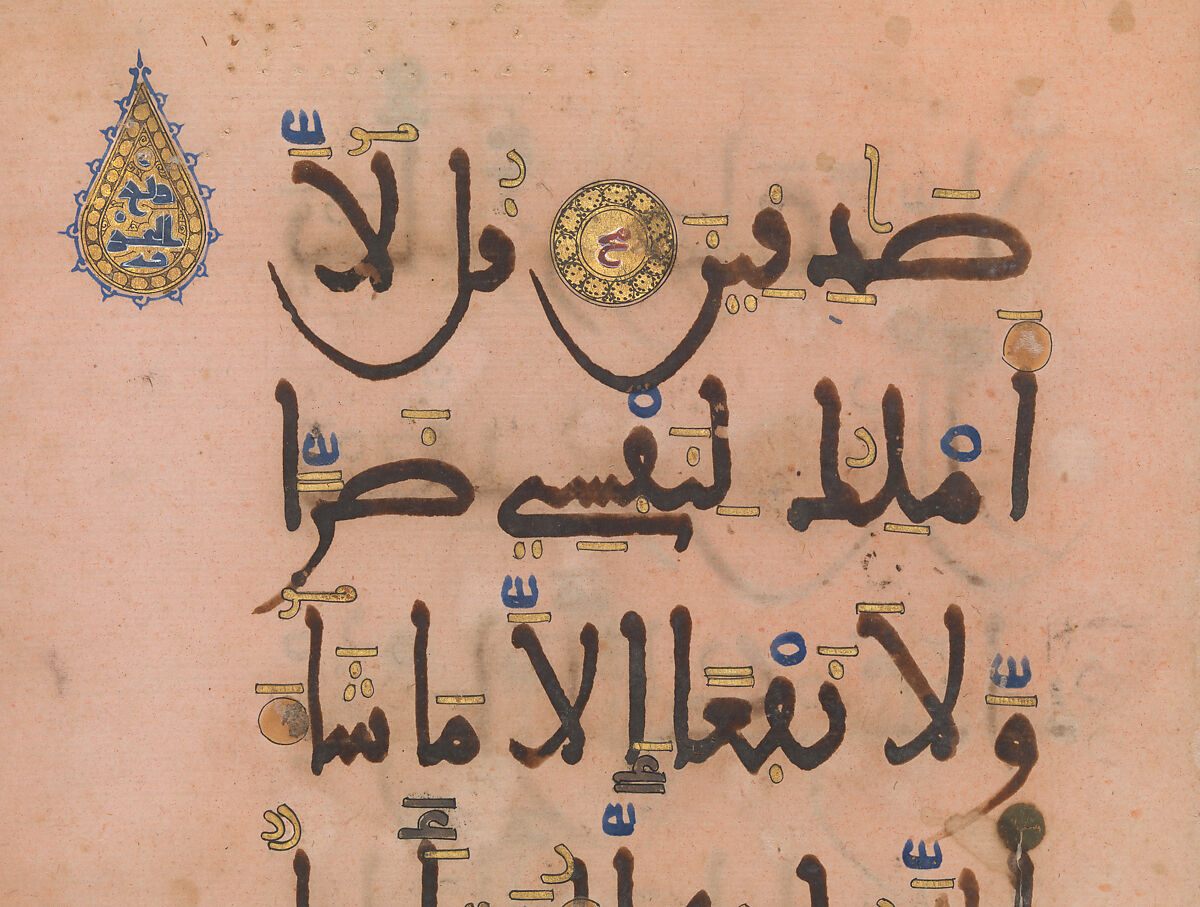 صَٰدِقِينَ قُل لَّا
أَمْلِكُ لِنَفْسِي ضَرًّا
وَّلَا نَفْعًا إِلَّا مَا شَا